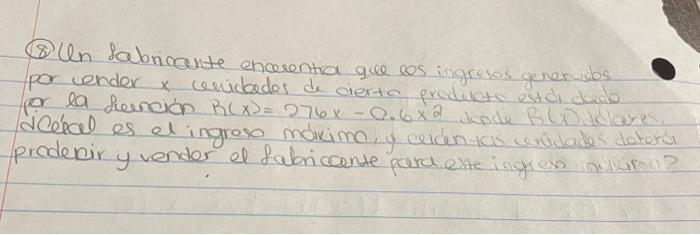 ⑧ Un fabricante encuentra que los ingresos generados
por vender x unidades de cierto producto está dado
por la función R(x)= 276x - 0.6x² donde R(x) dólares.
¿Cuál es el ingreso máximo, y cuántas unidades deberá
producir y vender el fabricante para este ingreso máximo?